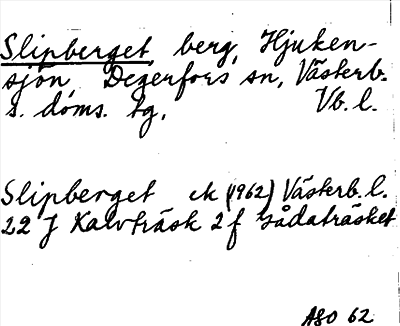 Slipberget, berg, Hjuken-
sjön, Degerfors sn, Västerb.
s. doms. tg, Vb. l.
Slipberget ek (1962) Västerb. l.
22 J Kalvträsk 2 f Sådaträsket
ASO 62